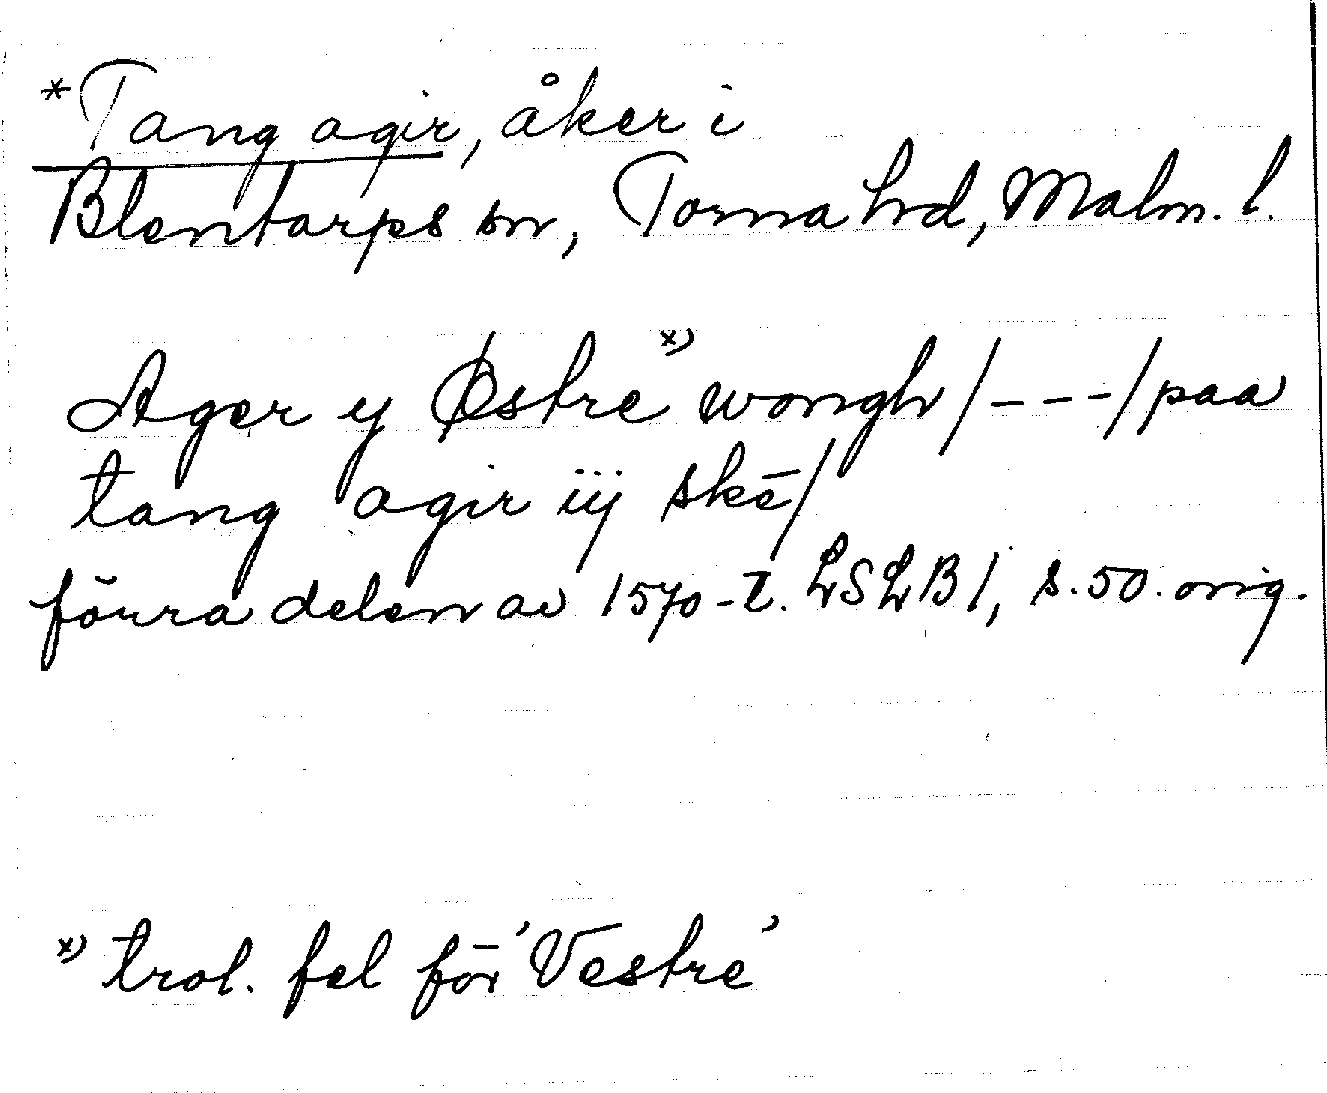 *Tang agir, åker i
Blentarps sn, Torna hrd, Malm. l.
Ager y Østre *) wongh /---/ paa
tang agir iij skē/
förra delen av 1570-t. LSLB 1, s. 50. orig.
*) trol. fel för 'Vestre'